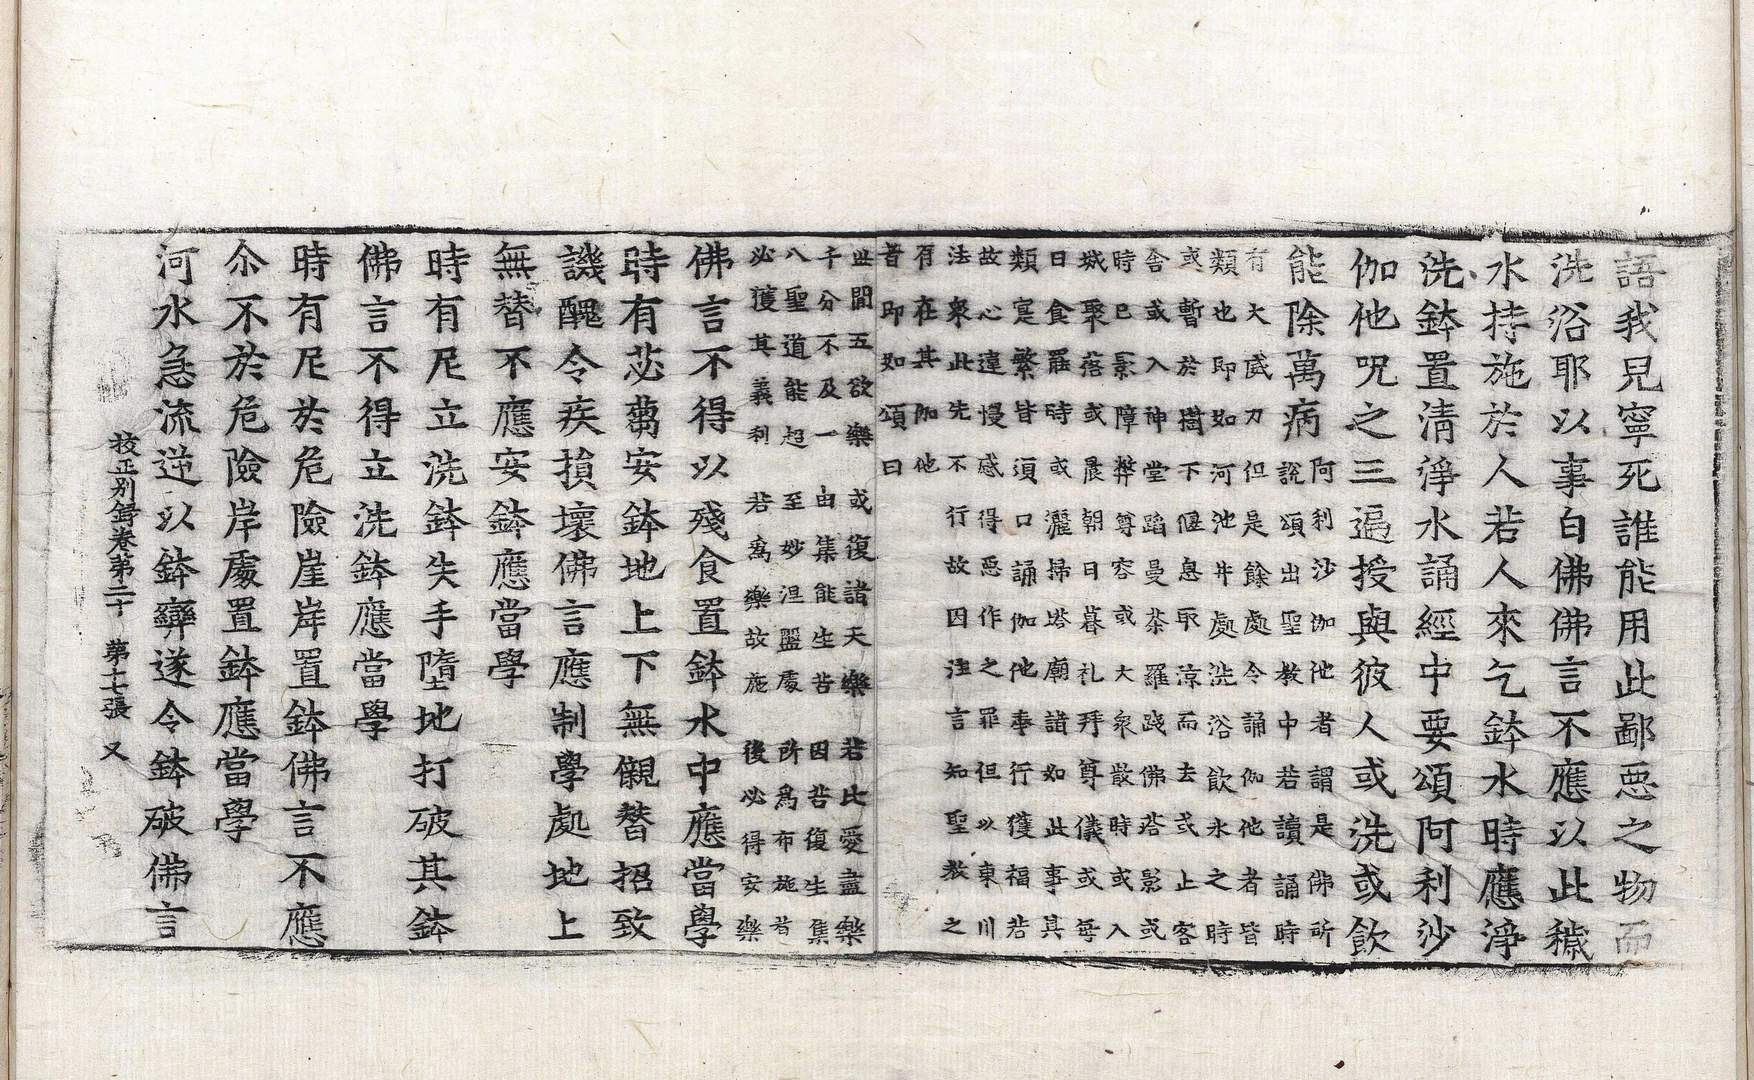 語我兄寧死誰能用此鄙惡之物而
洗浴耶以事白佛佛言不應以此穢
水持施於人若人來乞鉢水時應淨
洗鉢置清淨水誦經中要頌阿利沙
伽他呪之三遍授與彼人或洗或飮
能除萬病
阿利沙伽他者謂是佛所
說頌出聖教中若讀誦時
有大威力但是餘處令誦伽他者皆
類也卽如河池井處洗浴飮水之時
或暫於樹下偃息取涼而去或止客
舍或入神堂蹈曼荼羅踐佛塔影或
時已影障弊尊容或大衆散時或入
城聚落或晨朝日暮礼拜尊儀或每
日食罷時或灑掃塔廟諸如此事其
類寔繁皆須口誦伽他事行獲福若
故心違慢咸得惡作之罪但以東川
法衆此先不行故因注言知聖教之
有在其伽他
者卽如頌曰
世間五欲樂　或復諸天樂　若比愛盡樂
千分不及一　由集能生苦　因苦復生集
八聖道能超　至妙涅盤處　所爲布施者
必獲其義利　若爲樂故施　後必得安樂
佛言不得以殘食置鉢水中應當學
時有苾蒭安鉢地上下無儭替招致
譏醜令疾損壞佛言應制學處地上
無替不應安鉢應當學
時有尼立洗鉢失手墮地打破其鉢
佛言不得立洗鉢應當學
時有尼於危險崖岸置鉢佛言不應
尒不於危險岸處置鉢應當學
河水急流逆以鉢㪺遂令鉢破佛言
校正別録卷第二十　第十七張　又